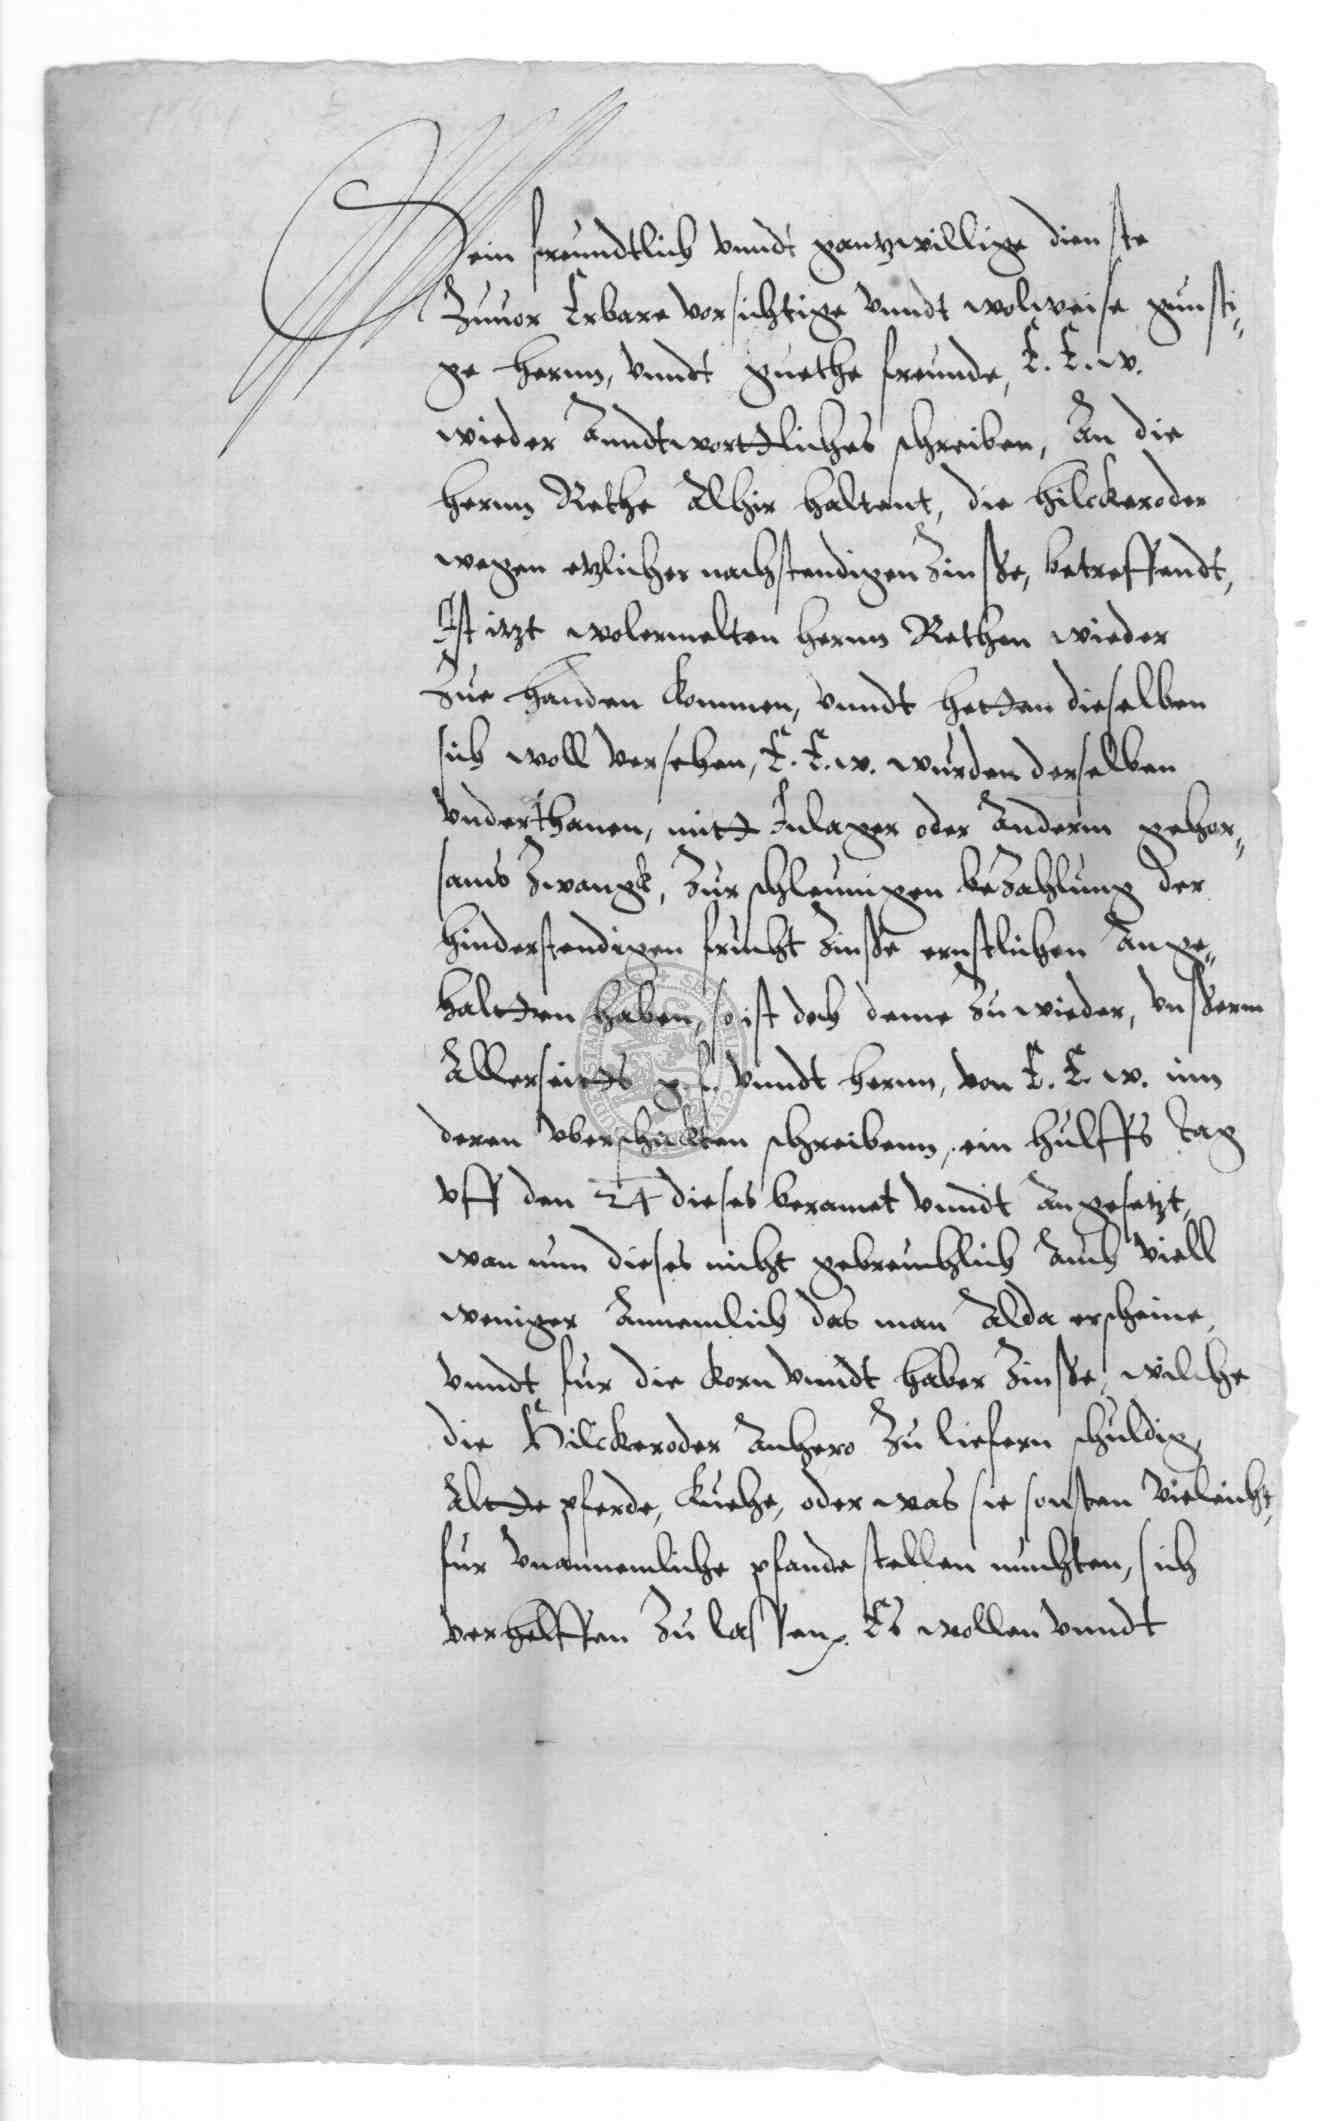 Mein freundtlich vnndt gantzwillige dienste
Zuuor Erbare vorsichtige vnndt wolweise gunsti„
ge hernn, vnndt guethe freunde, E. E. w.
wieder Anndtworttliches schreiben, An die
hernn Rethe Alhir haltent, die Hilckeroder
wegen etzlicher nachstendigen Zinße, betreffendt,
Ist itzt wolermelten hernn Rethen wieder
Zue handen kommen, vnndt hetten dieselben
sich woll versehen, E. E. w. wurden derselben
vnderthanen, mitt Inlager oder Anderm gehor„
sams Zwangk, Zur schleunigen beZahlung der
hinderstendigen frucht Zinße ernstlichen Ange„
haltten haben, so ist doch deme Zu wieder, vnßerm
Allerseitts g. f. vnndt hernn, von E. E. w. inn
deren vberschickten schreibenn, ein hulffs tag
vff den 24 dieses beramet vnndt Angesetzt,
wan nun dieses nicht gebreuchlich Auch viell
weniger Annemlich das man Alda erscheine,
vnndt fur die korn vnndt haber Zinße, wilche
die Hilckeroder Anhero Zu liefern schuldig,
Altte pferde, Kuehe, oder was sie sonsten vieleicht,
fur vnannemliche pfande stellen muchten, sich
verhelffen Zu lassen. Es wollen vnndt